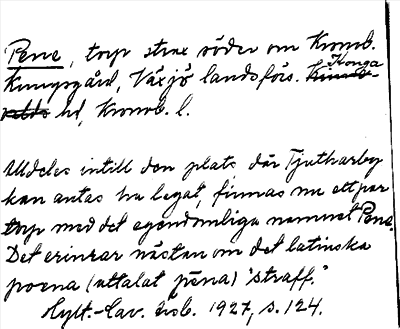 Pene, torp strax söder om Kronob.
Kungsgård, Växjö landsförs. Konga
hd, Kronob. l.
Alldeles intill den plats, där Tjutharby
kan antas ha legat, finnas nu ett par
torp med det egendomliga namnet Pene.
Det erinrar nästan om det latinska
poena (uttalat pēna) "straff."
Hylt.-Cav. årsb. 1927, s. 124.